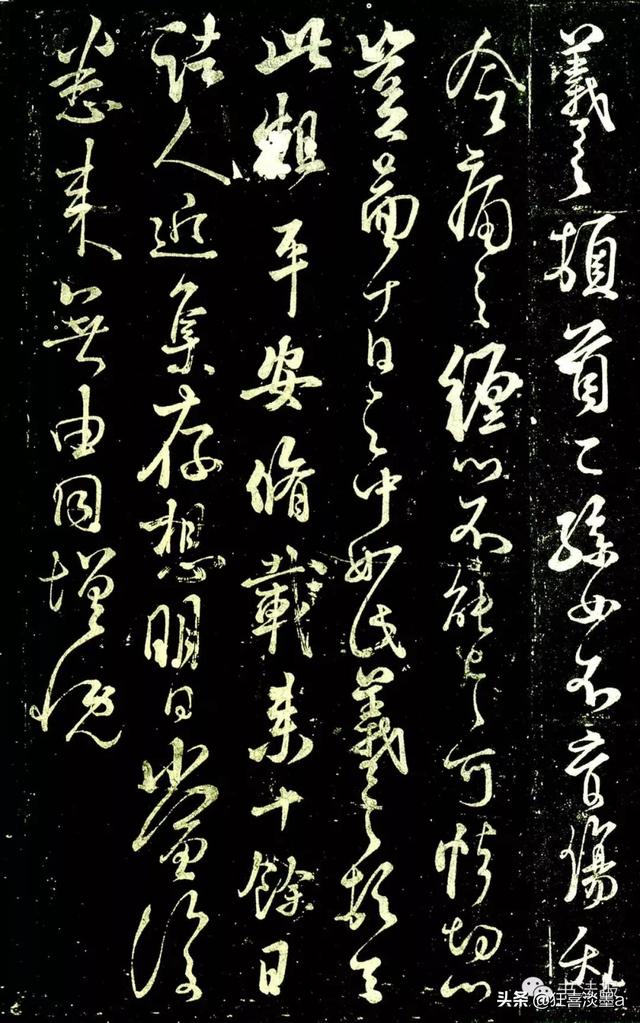 羲之頓首二孫女不育傷
痛之纏心不能已已可切心
豈圖十日之中如此羲之頓首
此粗平安脩載來十餘日
諸人近集存想明日當復
悉來無由同增慨
头条 @狂喜淡墨a